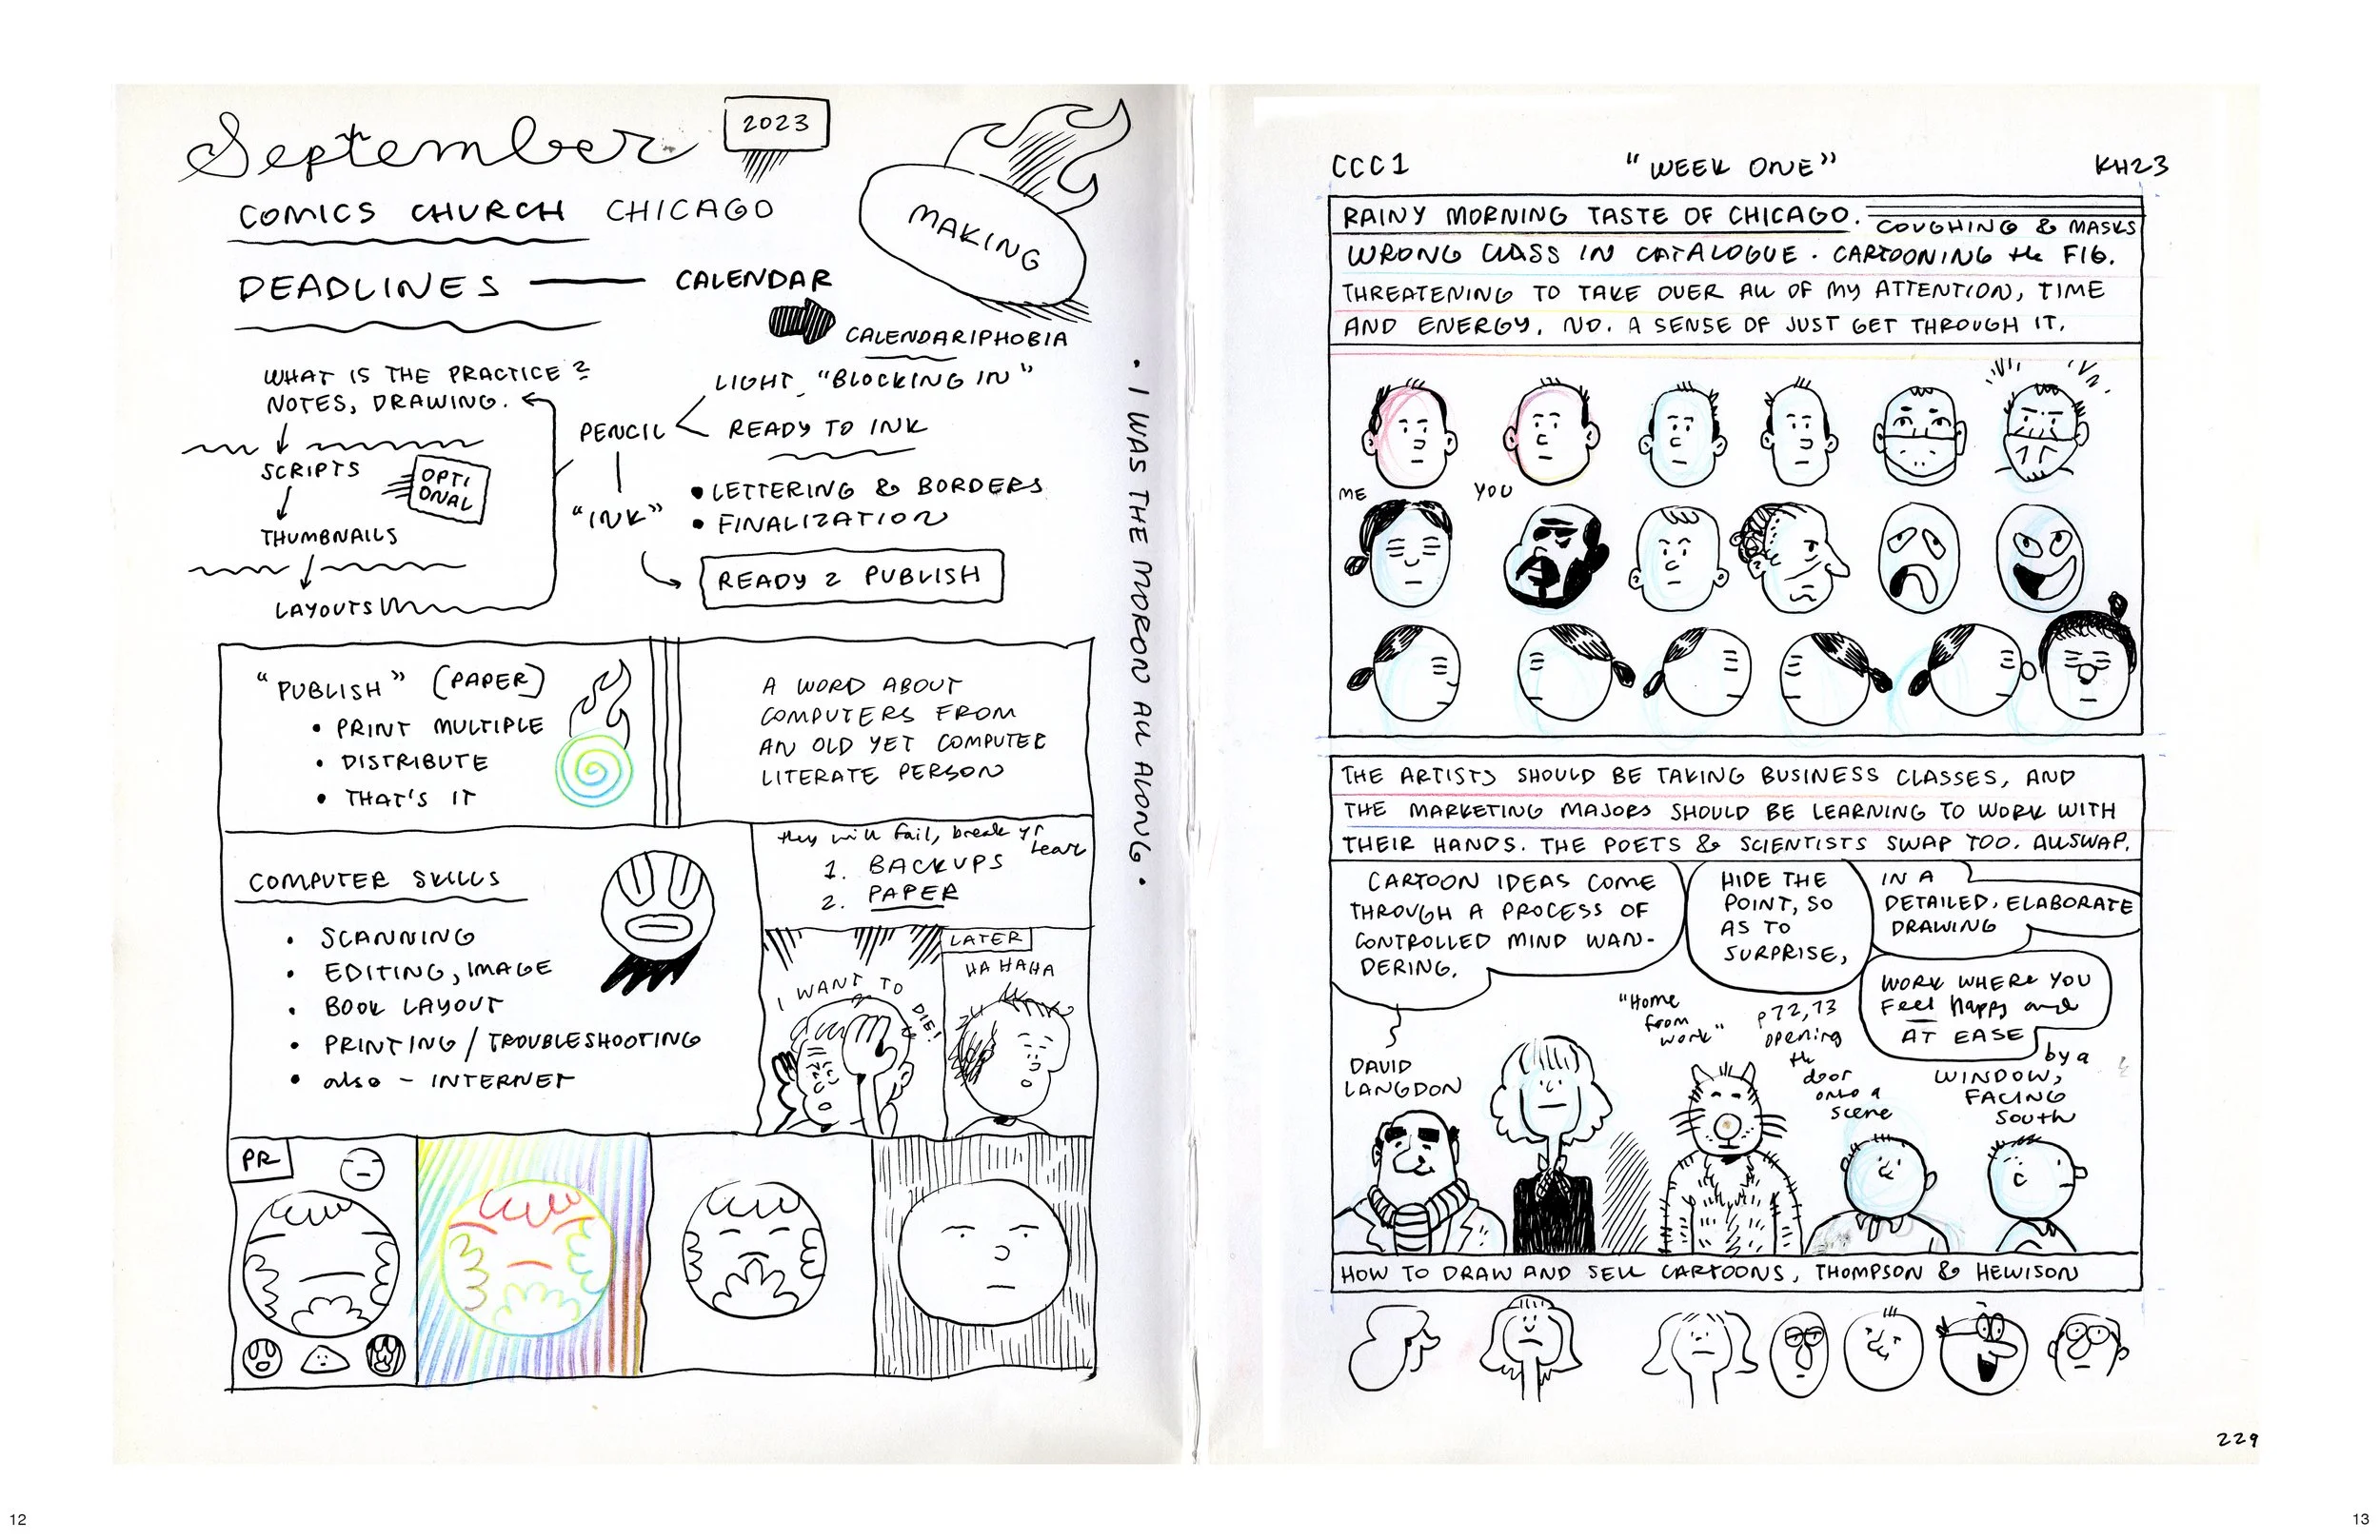 September
2023
COMICS CHURCH CHICAGO
MAKING
DEADLINES — CALENDAR
CALENDARIPHOBIA
WHAT IS THE PRACTICE?
NOTES, DRAWING.
SCRIPTS
OPTI
ONAL
THUMBNAILS
LAYOUTS
PENCIL
LIGHT, "BLOCKING IN"
READY TO INK
"INK"
• LETTERING & BORDERS
• FINALIZATION
READY 2 PUBLISH
• I WAS THE MORON ALL ALONG •
"PUBLISH" (PAPER)
• PRINT MULTIPLE
• DISTRIBUTE
• THAT'S IT
A WORD ABOUT
COMPUTERS FROM
AN OLD YET COMPUTER
LITERATE PERSON
COMPUTER SKILLS
• SCANNING
• EDITING, IMAGE
• BOOK LAYOUT
• PRINTING / TROUBLESHOOTING
• also - INTERNET
they will fail, break yr
heart
1. BACKUPS
2. PAPER
I WANT TO DIE!
LATER
HA HAHA
PR
12
CCC1
"WEEK ONE"
KH23
RAINY MORNING TASTE OF CHICAGO. COUGHING & MASKS
WRONG CLASS IN CATALOGUE. CARTOONING the FIG.
THREATENING TO TAKE OVER ALL OF MY ATTENTION, TIME
AND ENERGY. NO. A SENSE OF JUST GET THROUGH IT.
ME
YOU
THE ARTISTS SHOULD BE TAKING BUSINESS CLASSES, AND
THE MARKETING MAJORS SHOULD BE LEARNING TO WORK WITH
THEIR HANDS. THE POETS & SCIENTISTS SWAP TOO. ALLSWAP.
CARTOON IDEAS COME
THROUGH A PROCESS OF
CONTROLLED MIND WAN-
DERING.
HIDE THE
POINT, SO
AS TO
SURPRISE,
IN A
DETAILED, ELABORATE
DRAWING
WORK WHERE YOU
Feel happy and
AT EASE
by a
WINDOW,
FACING
SOUTH
"Home
from
work"
p72,73
opening
the
door
onto a
scene
DAVID
LANGDON
HOW TO DRAW AND SELL CARTOONS, THOMPSON & HEWISON
229
13